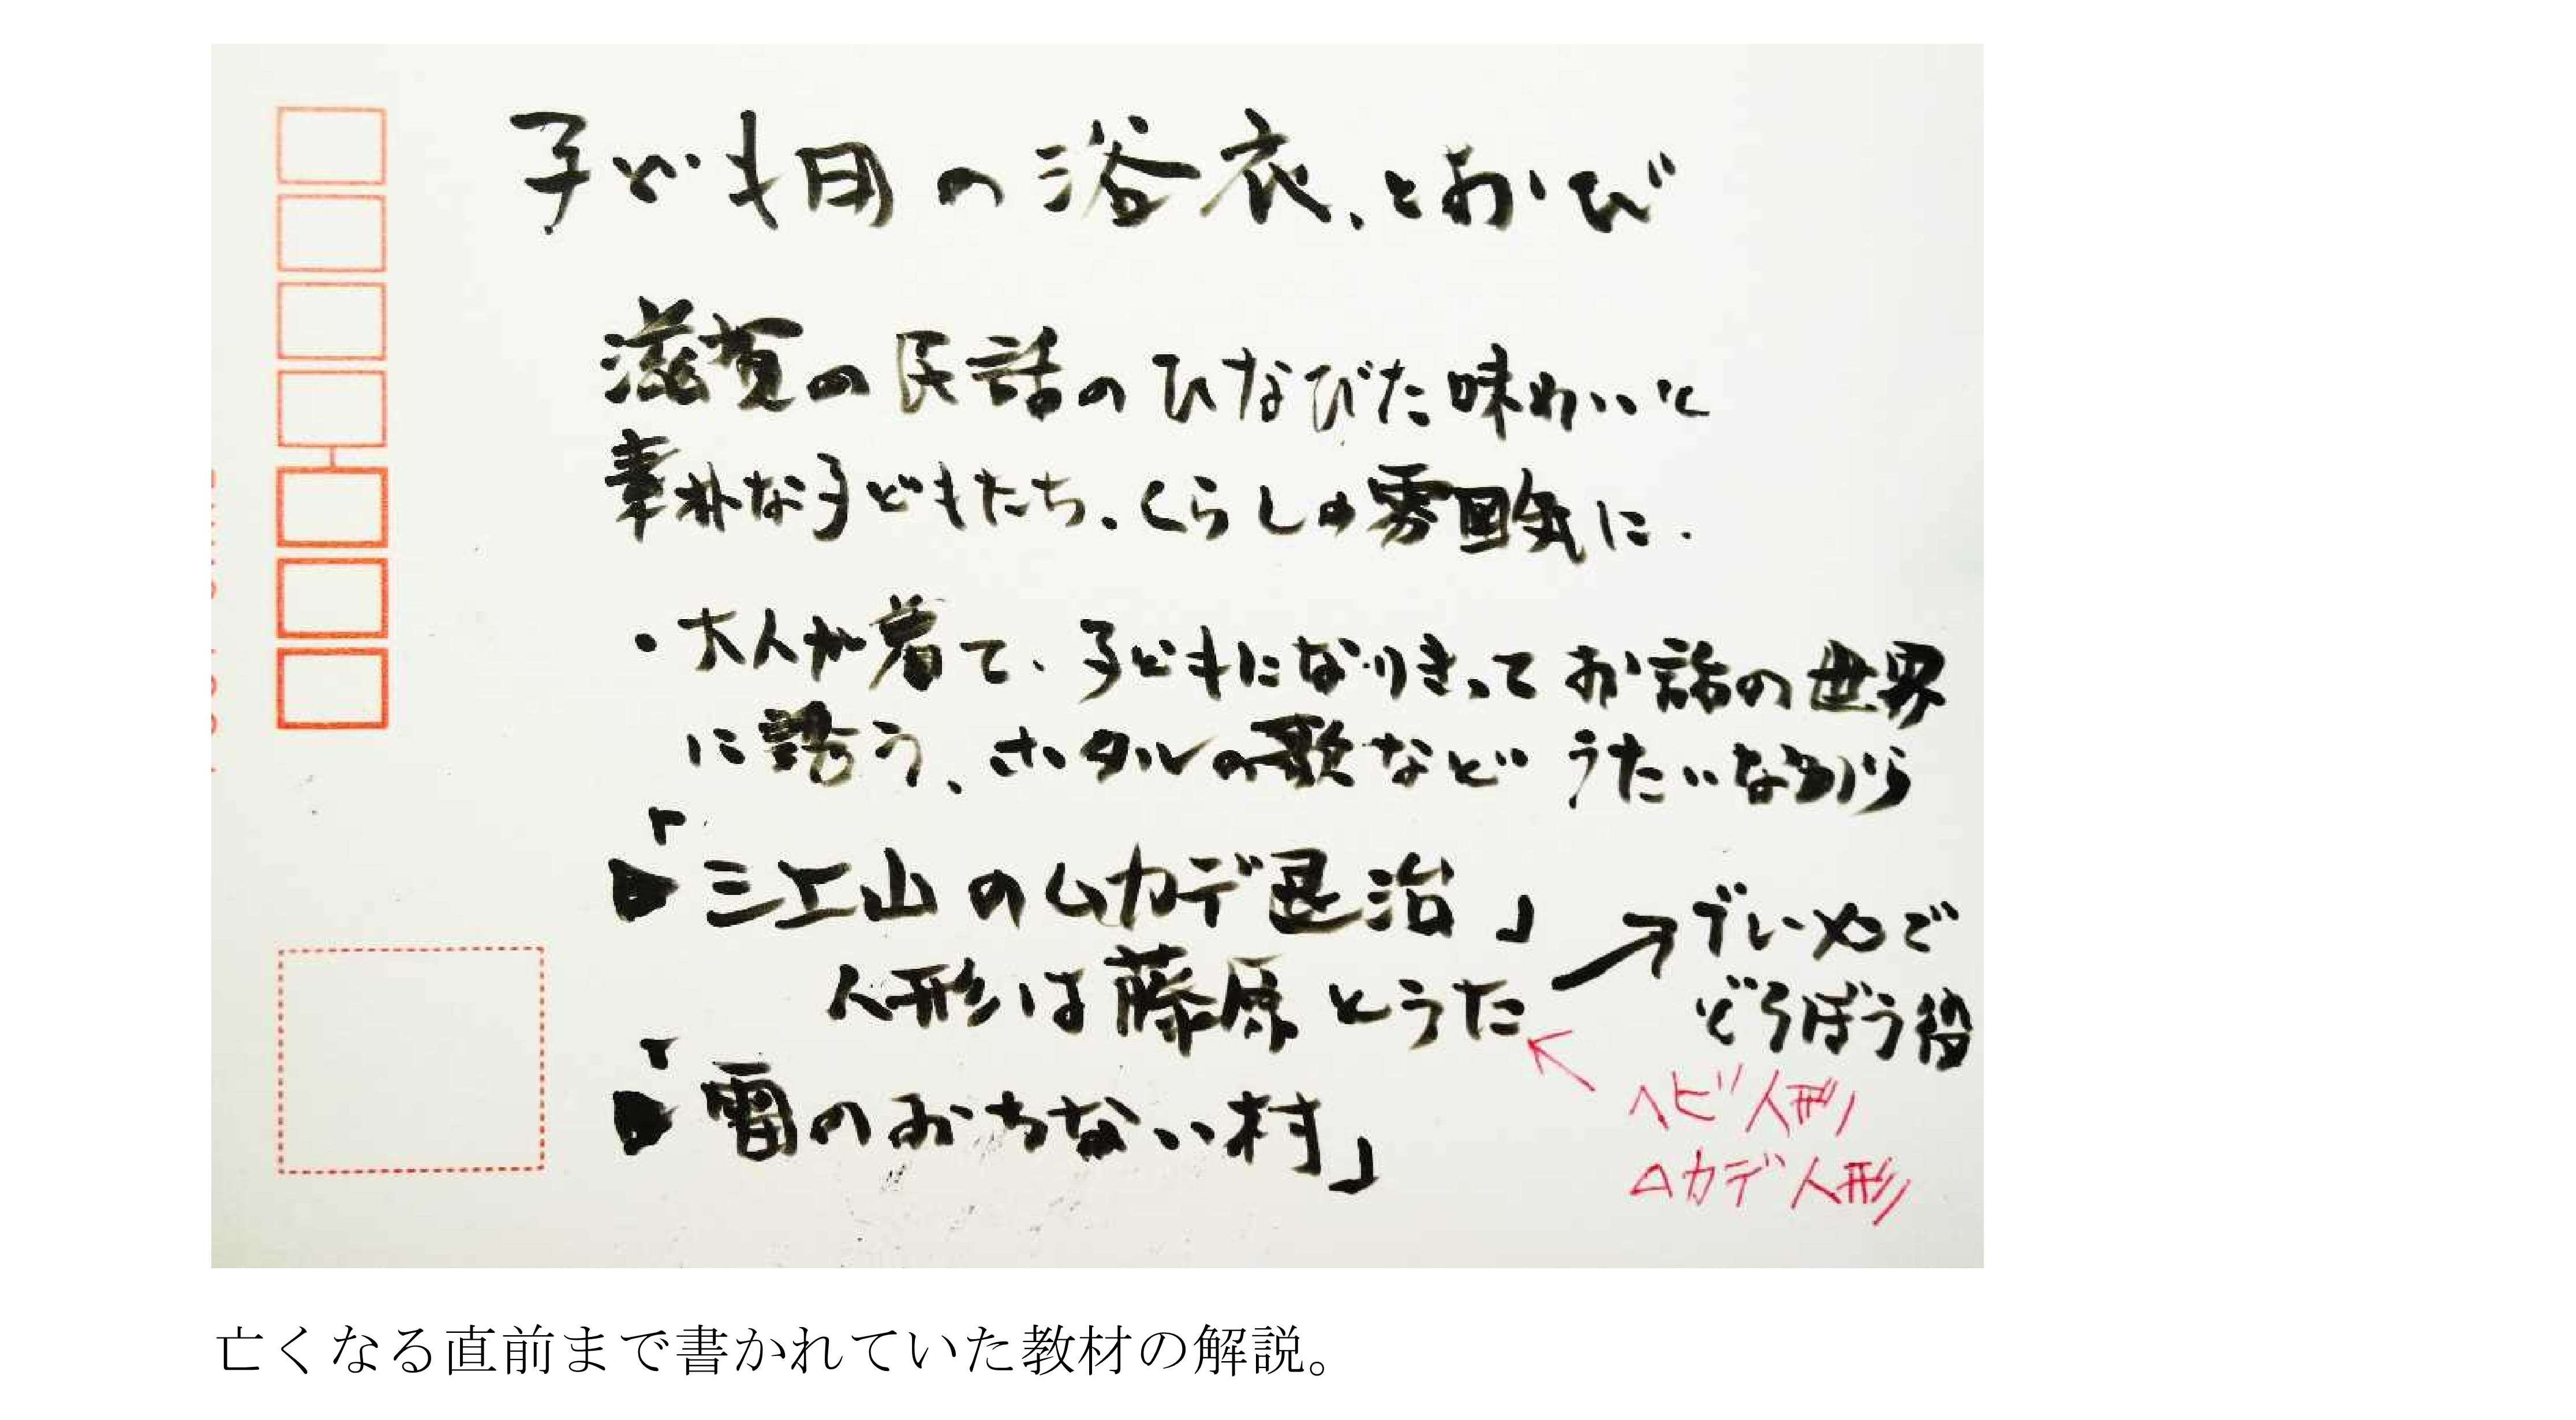 子ども用の浴衣、とおび
滋賀の民話のひなびた味わいと
素朴な子どもたち、くらしの雰囲気に.
・大人が着て、子どもになりきってお話の世界
に誘う、ホタルの歌など うたいながら
▶「三上山のムカデ退治」
人形は藤原とうた
→ブレーメンで
どろぼう役
ヘビ人形
ムカデ人形
▶「雷のおちない村」
亡くなる直前まで書かれていた教材の解説。